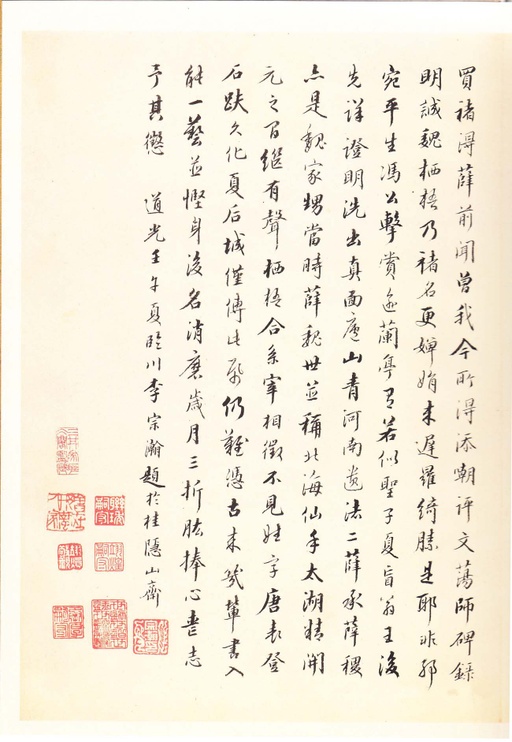 買褚得薛前聞曾我今所得添嘲評文蕩師碑錄
明誠魏栖梧乃褚名更嬋娟未遲羅綺勝是耶非
宛平生馮公擊賞蘭亭有若似聖子夏盲翁王後
先詳證明洗出真面廬山青河南遺法二薛承薛稷
亦是魏家甥當時薛魏世並稱北海仙手太湖精開
元之間繼有聲栖梧合系宰相徵不見姓字唐表登
石趺久化夏后城僅傳此仍難憑古來幾輩書入
能一藝並慳身後名消磨歲月三折肱捧心
予其懲 道光壬午夏臨川李宗瀚題於桂隱山齋